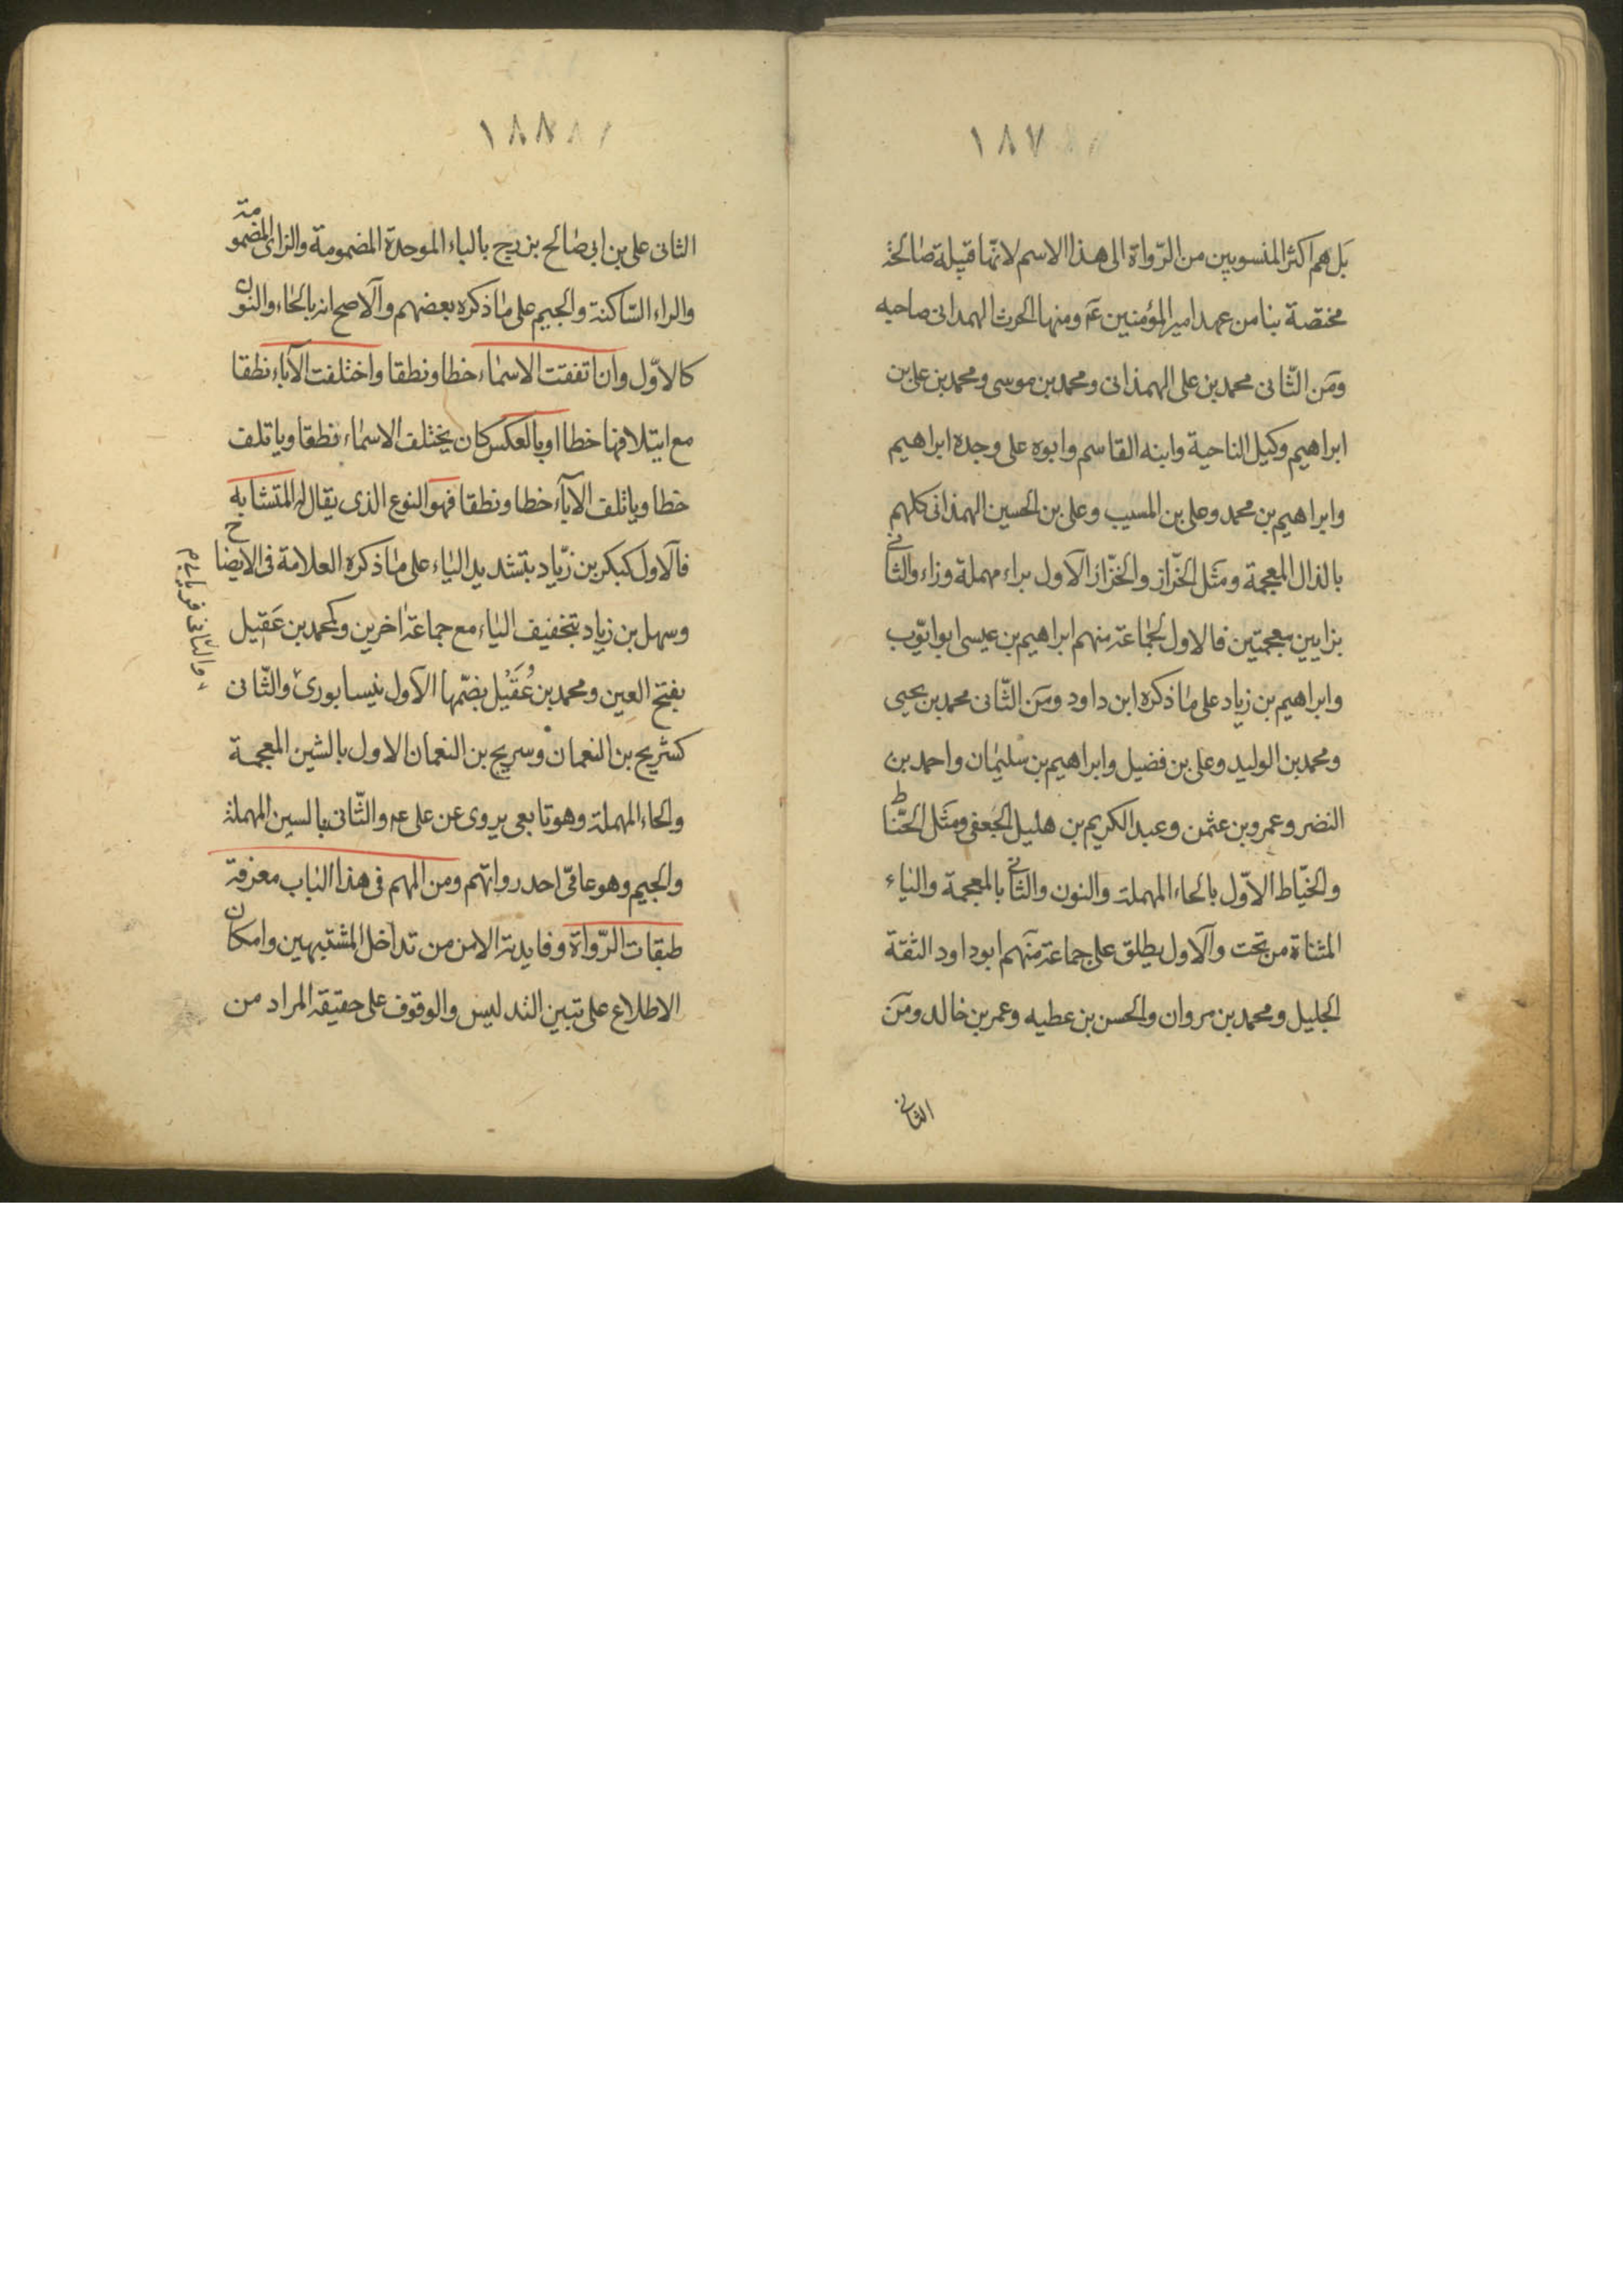 ١٨٧
بل هم اكثر المنسوبين من الرّواة الى هذا الاسم لانّها قبيلة صالحة
مختصة بنا من عهد امير المؤمنين عم ومنها الحرث الهمدانى صاحبه
ومن الثّانى محمد بن على الهمذانى ومحمد بن موسى ومحمد بن على بن
ابراهيم وكيل الناحية وابنه القاسم وابوه على وجده ابراهيم
وابراهيم بن محمد وعلى بن المسيب وعلى بن الحسين الهمذانى كلهم
بالذال المعجمة ومثل الخرّاز والخزّاز الاول براء مهملة وزاء والثانى
بزايين معجمتين فالاول لجماعة منهم ابراهيم بن عيسى ابو ايّوب
وابراهيم بن زياد على ما ذكره ابن داود ومن الثّانى محمد بن يحيى
ومحمد بن الوليد وعلى بن فضيل وابراهيم بن سليمان واحمد بن
النضر وعمرو بن عثمن وعبد الكريم بن هليل الجعفى ومثل الحنّاط
والخيّاط الاوّل بالحاء المهملة والنون والثانى بالمعجمة والياء
المثناة من تحت والاول يطلق على جماعة منهم ابو داود الثقة
الجليل ومحمد بن مروان والحسن بن عطيه وعمر بن خالد ومن
الثانى
١٨٨
الثانى على بن ابى صالح بزرج بالباء الموحدة المضمومة والزاى المضمومة
والراء السّاكنة والجيم على ما ذكره بعضهم والاصح انه بالحاء والنون
كالاوّل وان اتفقت الاسماء خطا ونطقا واختلفت الآباء نطقا
مع ايتلافها خطا او بالعكس كان يختلف الاسماء نطقا وياتلف
خطا وياتلف الآباء خطا ونطقا فهو النوع الذى يقال له المتشابه
فالاول كبكر بن زيّاد بتشديد الياء على ما ذكره العلامة فى الايضاح
وسهل بن زياد بتخفيف الياء مع جماعة اخرين وكمحمد بن عَقِيل
بفتح العين ومحمد بن عُقَيْل بضمّها الاول نيسابورى والثّانى
كشريح بن النعمان وسريج بن النعمان الاول بالشين المعجمة
والحاء المهملة وهو تابعى يروى عن على عم والثّانى بالسين المهملة
والجيم وهو عامّى احد رواتهم ومن المهم فى هذا الباب معرفة
طبقات الرّواة وفايدته الامن من تداخل المشتبهين وامكان
الاطلاع على تبين التدليس والوقوف على حقيقة المراد من